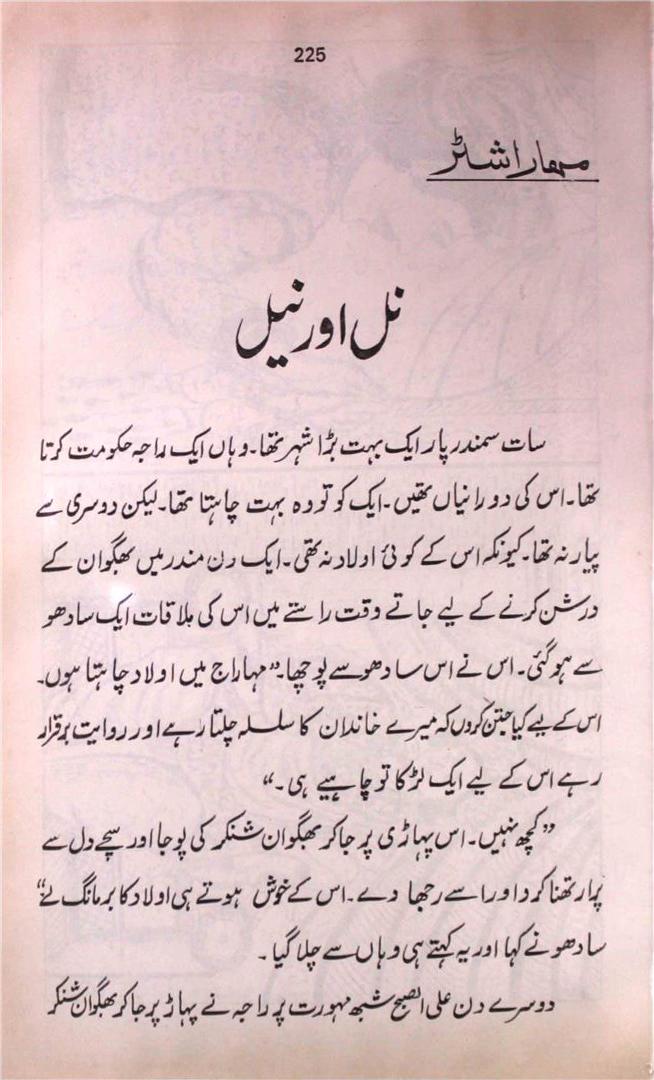 225
مہاراشٹر
نل اور نیل
سات سمندر پار ایک بہت بڑا شہر تھا۔ وہاں ایک راجہ حکومت کرتا
تھا۔ اس کی دو رانیاں تھیں۔ ایک کو تو وہ بہت چاہتا تھا۔ لیکن دوسری سے
پیار نہ تھا۔ کیونکہ اس کے کوئی اولاد نہ تھی۔ ایک دن مندر میں بھگوان کے
درشن کرنے کے لیے جاتے وقت راستے میں اس کی ملاقات ایک سادھو
سے ہو گئی۔ اس نے اس سادھو سے پوچھا۔ ”مہاراج میں اولاد چاہتا ہوں۔
اس کے لیے کیا جتن کروں کہ میرے خاندان کا سلسلہ چلتا رہے اور روایت برقرار
رہے اس کے لیے ایک لڑکا تو چاہیے ہی۔“
”کچھ نہیں۔ اس پہاڑی پر جا کر بھگوان شنکر کی پوجا اور سچے دل سے
پرارتھنا کر داورا سے رجھا دے۔ اس کے خوش ہوتے ہی اولاد کا بر مانگ لے“
سادھو نے کہا اور یہ کہتے ہی وہاں سے چلا گیا۔
دوسرے دن علی الصبح شبھ مہورت پر راجہ نے پہاڑ پر جا کر بھگوان شنکر